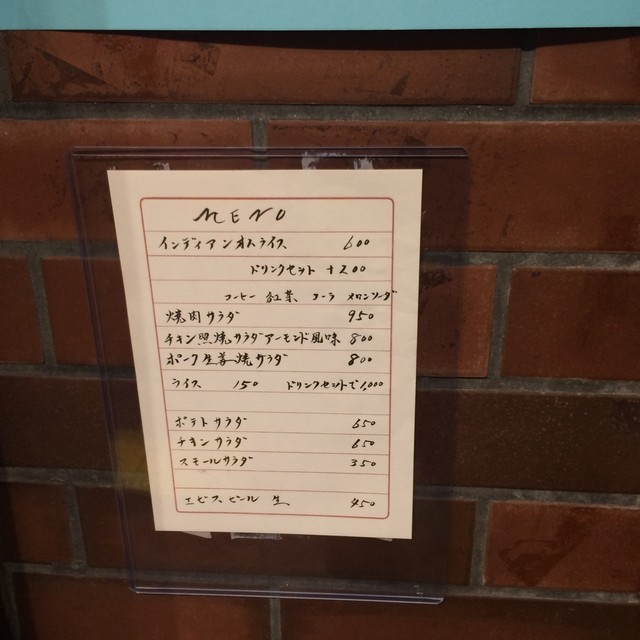 MENU
インディアンオムライス 600
ドリンクセット +200
コーヒー 紅茶 コーラ メロンソーダ
焼肉サラダ 950
チキン照焼サラダアーモンド風味 800
ポーク生姜焼サラダ 800
ライス 150 ドリンクセットで1000
ポテトサラダ 650
チキンサラダ 650
スモールサラダ 350
エビスビール 生 450